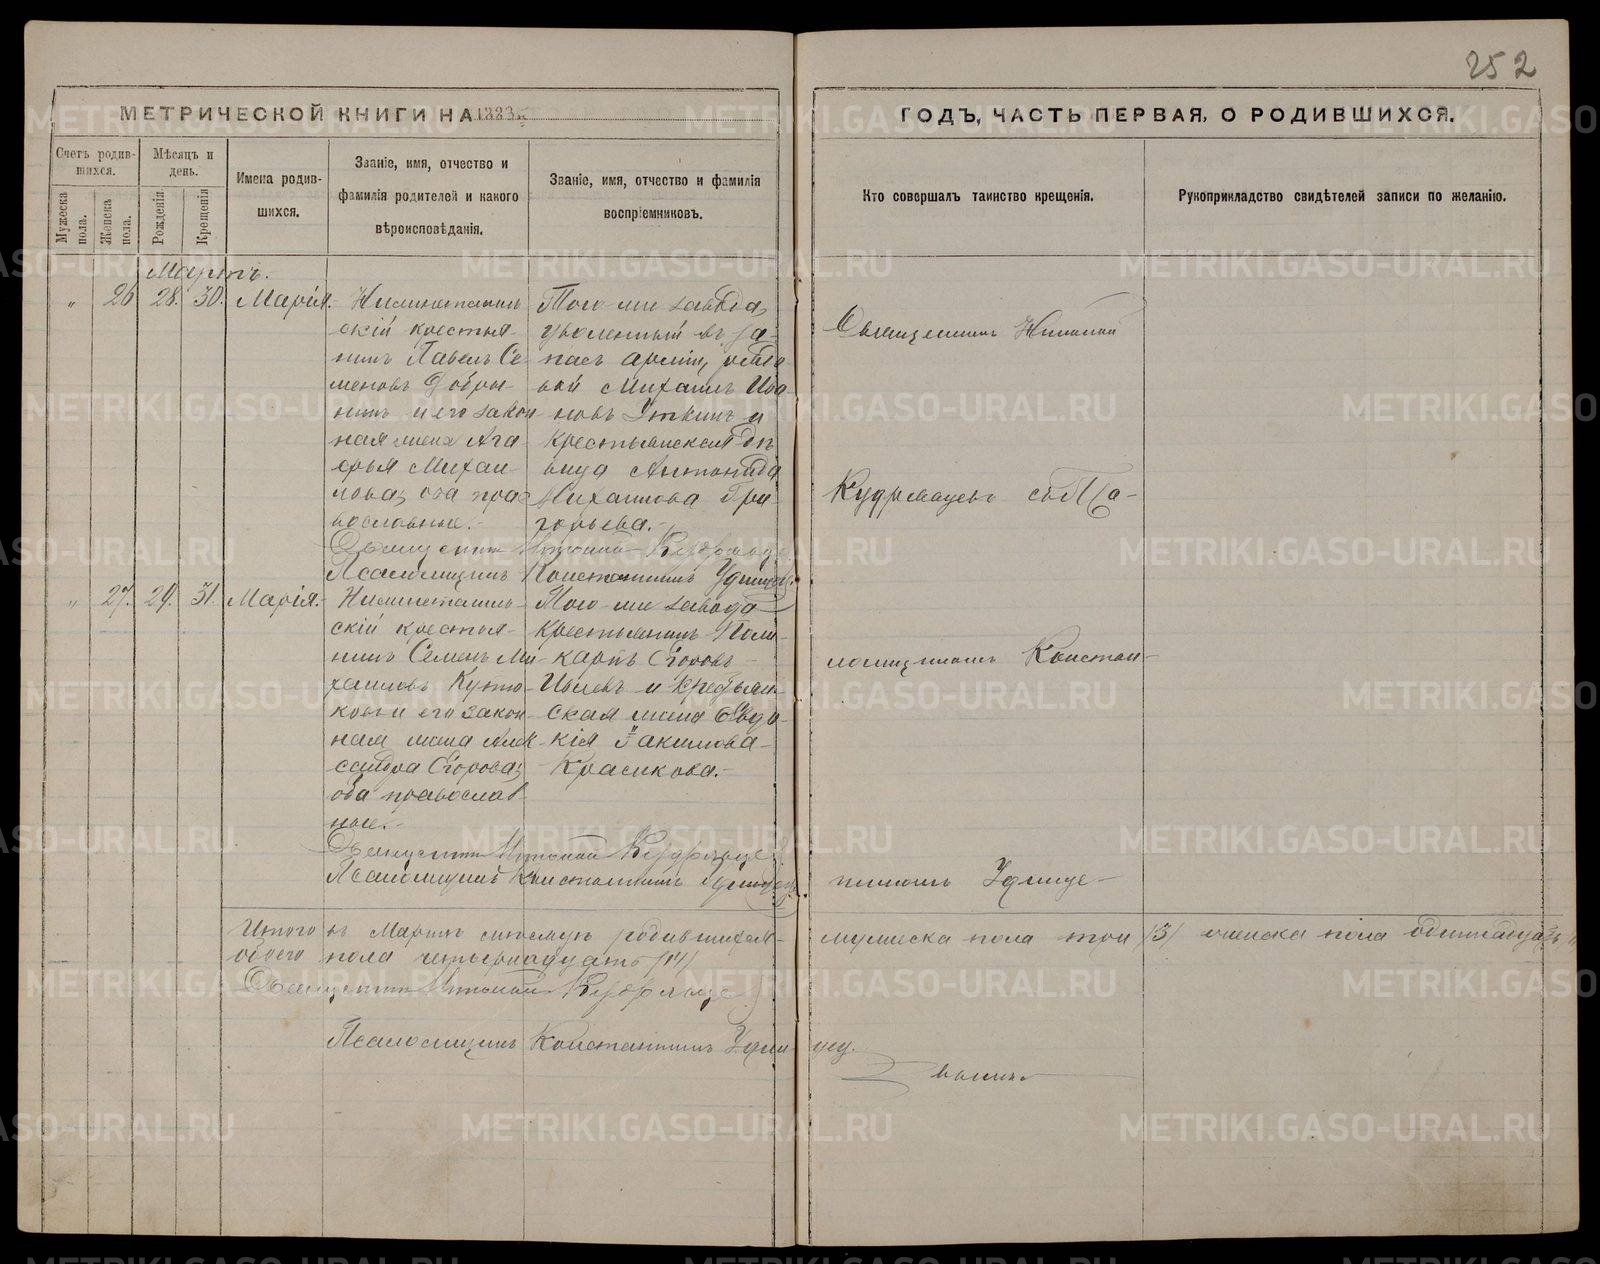 252
МЕТРИЧЕСКОЙ КНИГИ НА 1883
ГОДЪ, ЧАСТЬ ПЕРВАЯ, О РОДИВШИХСЯ.
Счетъ родив-
шихся.
Мужеска пола.
Женска пола.
Мѣсяцъ и
день.
Рожденія
Крещенія
Имена родив-
шихся.
Званіе, имя, отчество и
фамилія родителей и какого
вѣроисповѣданія.
Званіе, имя, отчество и фамилія
воспріемниковъ.
Кто совершалъ таинство крещенія.
Рукоприкладство свидѣтелей записи по желанію.
Мартъ.
" 26 28. 30. Марія.
скій кресть-
нинъ Павелъ Се-
меновъ Добры-
нинъ и его закон-
ная жена Ага-
фья Михаи-
лова, оба пра-
вославные.-
Того же завода,
уволенный въ за-
пасъ арміи, рядо-
вой Михаилъ Ива-
новъ Уткинъ и
крестьянская дѣ-
вица Антонида
Михаилова Гри-
горьева.-
Священникъ Николай
Кудрявцевъ
Священникъ Николай Кудрявцев
Псаломщикъ Константинъ
" 27. 29. 31. Марія.-
скій кресть-
нинъ Семенъ Ми-
хаиловъ
ковъ и его закон-
ная жена Алек-
сандра Егорова,
оба православ-
ные.-
Того же завода
крестьянинъ Поли-
карпъ Егоровъ
и крестьян-
ская жена Евдо-
кія Іакимова
Красикова.-
Константи-
Священникъ Николай Кудрявцев
Псаломщикъ Константинъ
Итого въ Мартѣ мѣсяцѣ родившихся
мужеска пола три /3/ женска пола одиннадцать
обоего пола четырнадцать /14/
Священникъ Николай Кудрявцев
Псаломщикъ Константинъ
METRIKI.GASO-URAL.RU